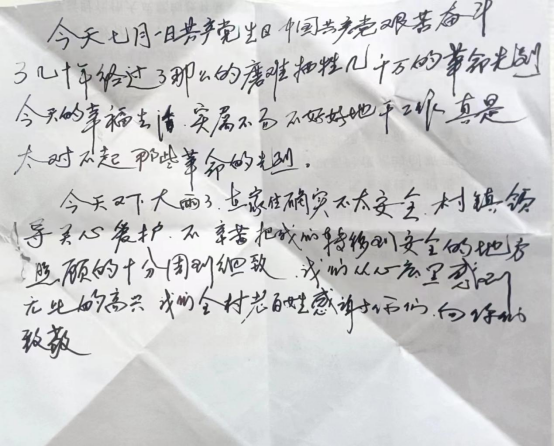 今天七月一日共产党生日 中国共产党艰苦奋斗
了几十年经过了那么的磨难牺牲几千万的革命先烈
今天的幸福生活.实属不易不好好地干工作真是
太对不起那些革命的先烈。
今天又下大雨了.在家住确实不太安全.村镇领
导关心爱护.不辞苦把我们转移到安全的地方
照顾的十分周到细致.我们从心底里感到
无比的高兴 我们全村老百姓感谢你们.向你们
致敬